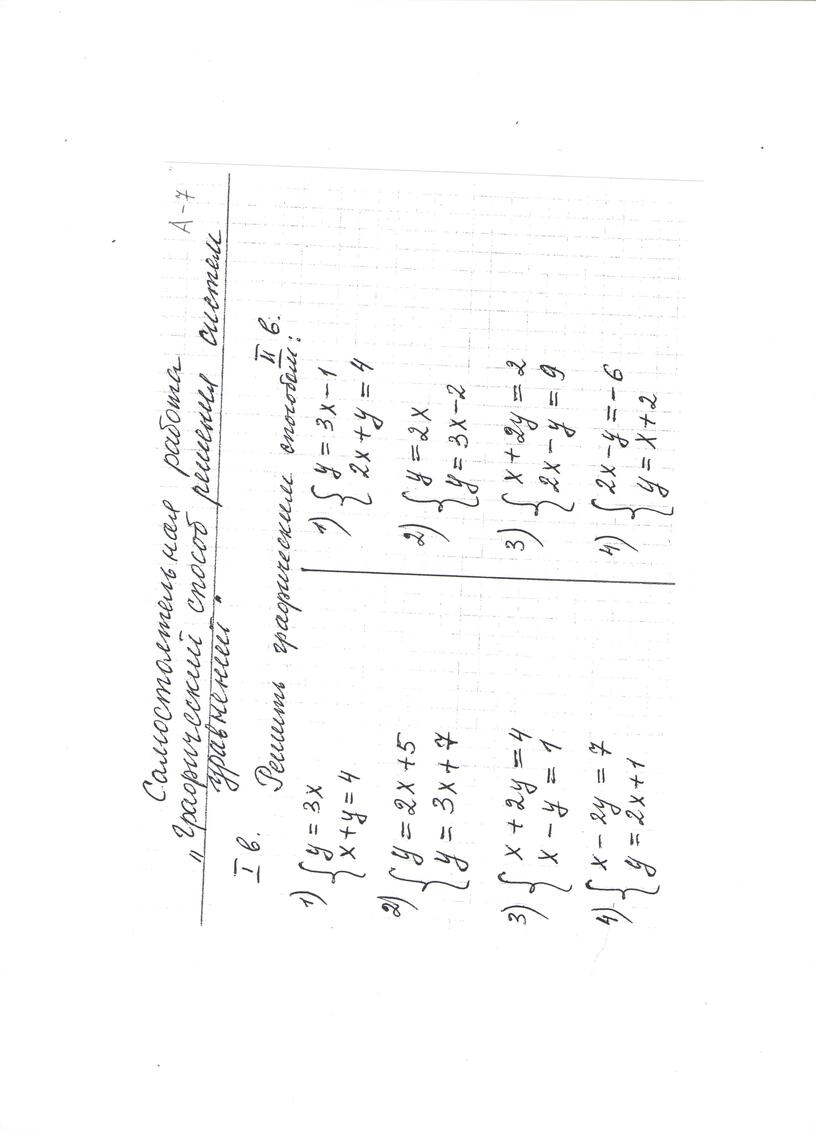 А-7
Самостоятельная работа
„Графический способ решения систем
уравнений"
Решить графическим способом:
I в.
1) { y = 3x
x + y = 4
2) { y = 2x + 5
y = 3x + 7
3) { x + 2y = 4
x - y = 1
4) { x - 2y = 7
y = 2x + 1
II в.
1) { y = 3x - 1
2x + y = 4
2) { y = 2x
y = 3x - 2
3) { x + 2y = 2
2x - y = 9
4) { 2x - y = -6
y = x + 2